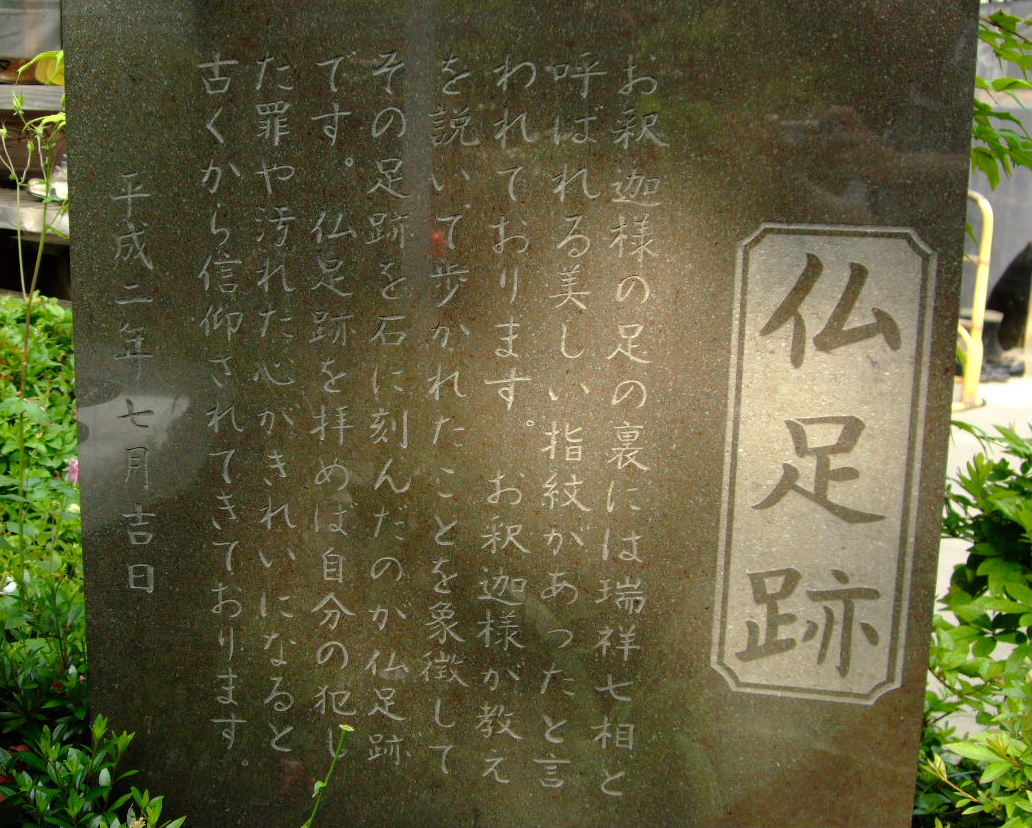 仏足跡
お釈迦様の足の裏には瑞祥七相と
呼ばれる美しい指紋があったと言
われております。お釈迦様が教え
を説いて歩かれたことを象徴して
その足跡を石に刻んだのが仏足跡
です。仏足跡を拝めば自分の犯し
た罪や汚れた心がきれいになると
古くから信仰されてきております。
平成二年七月吉日